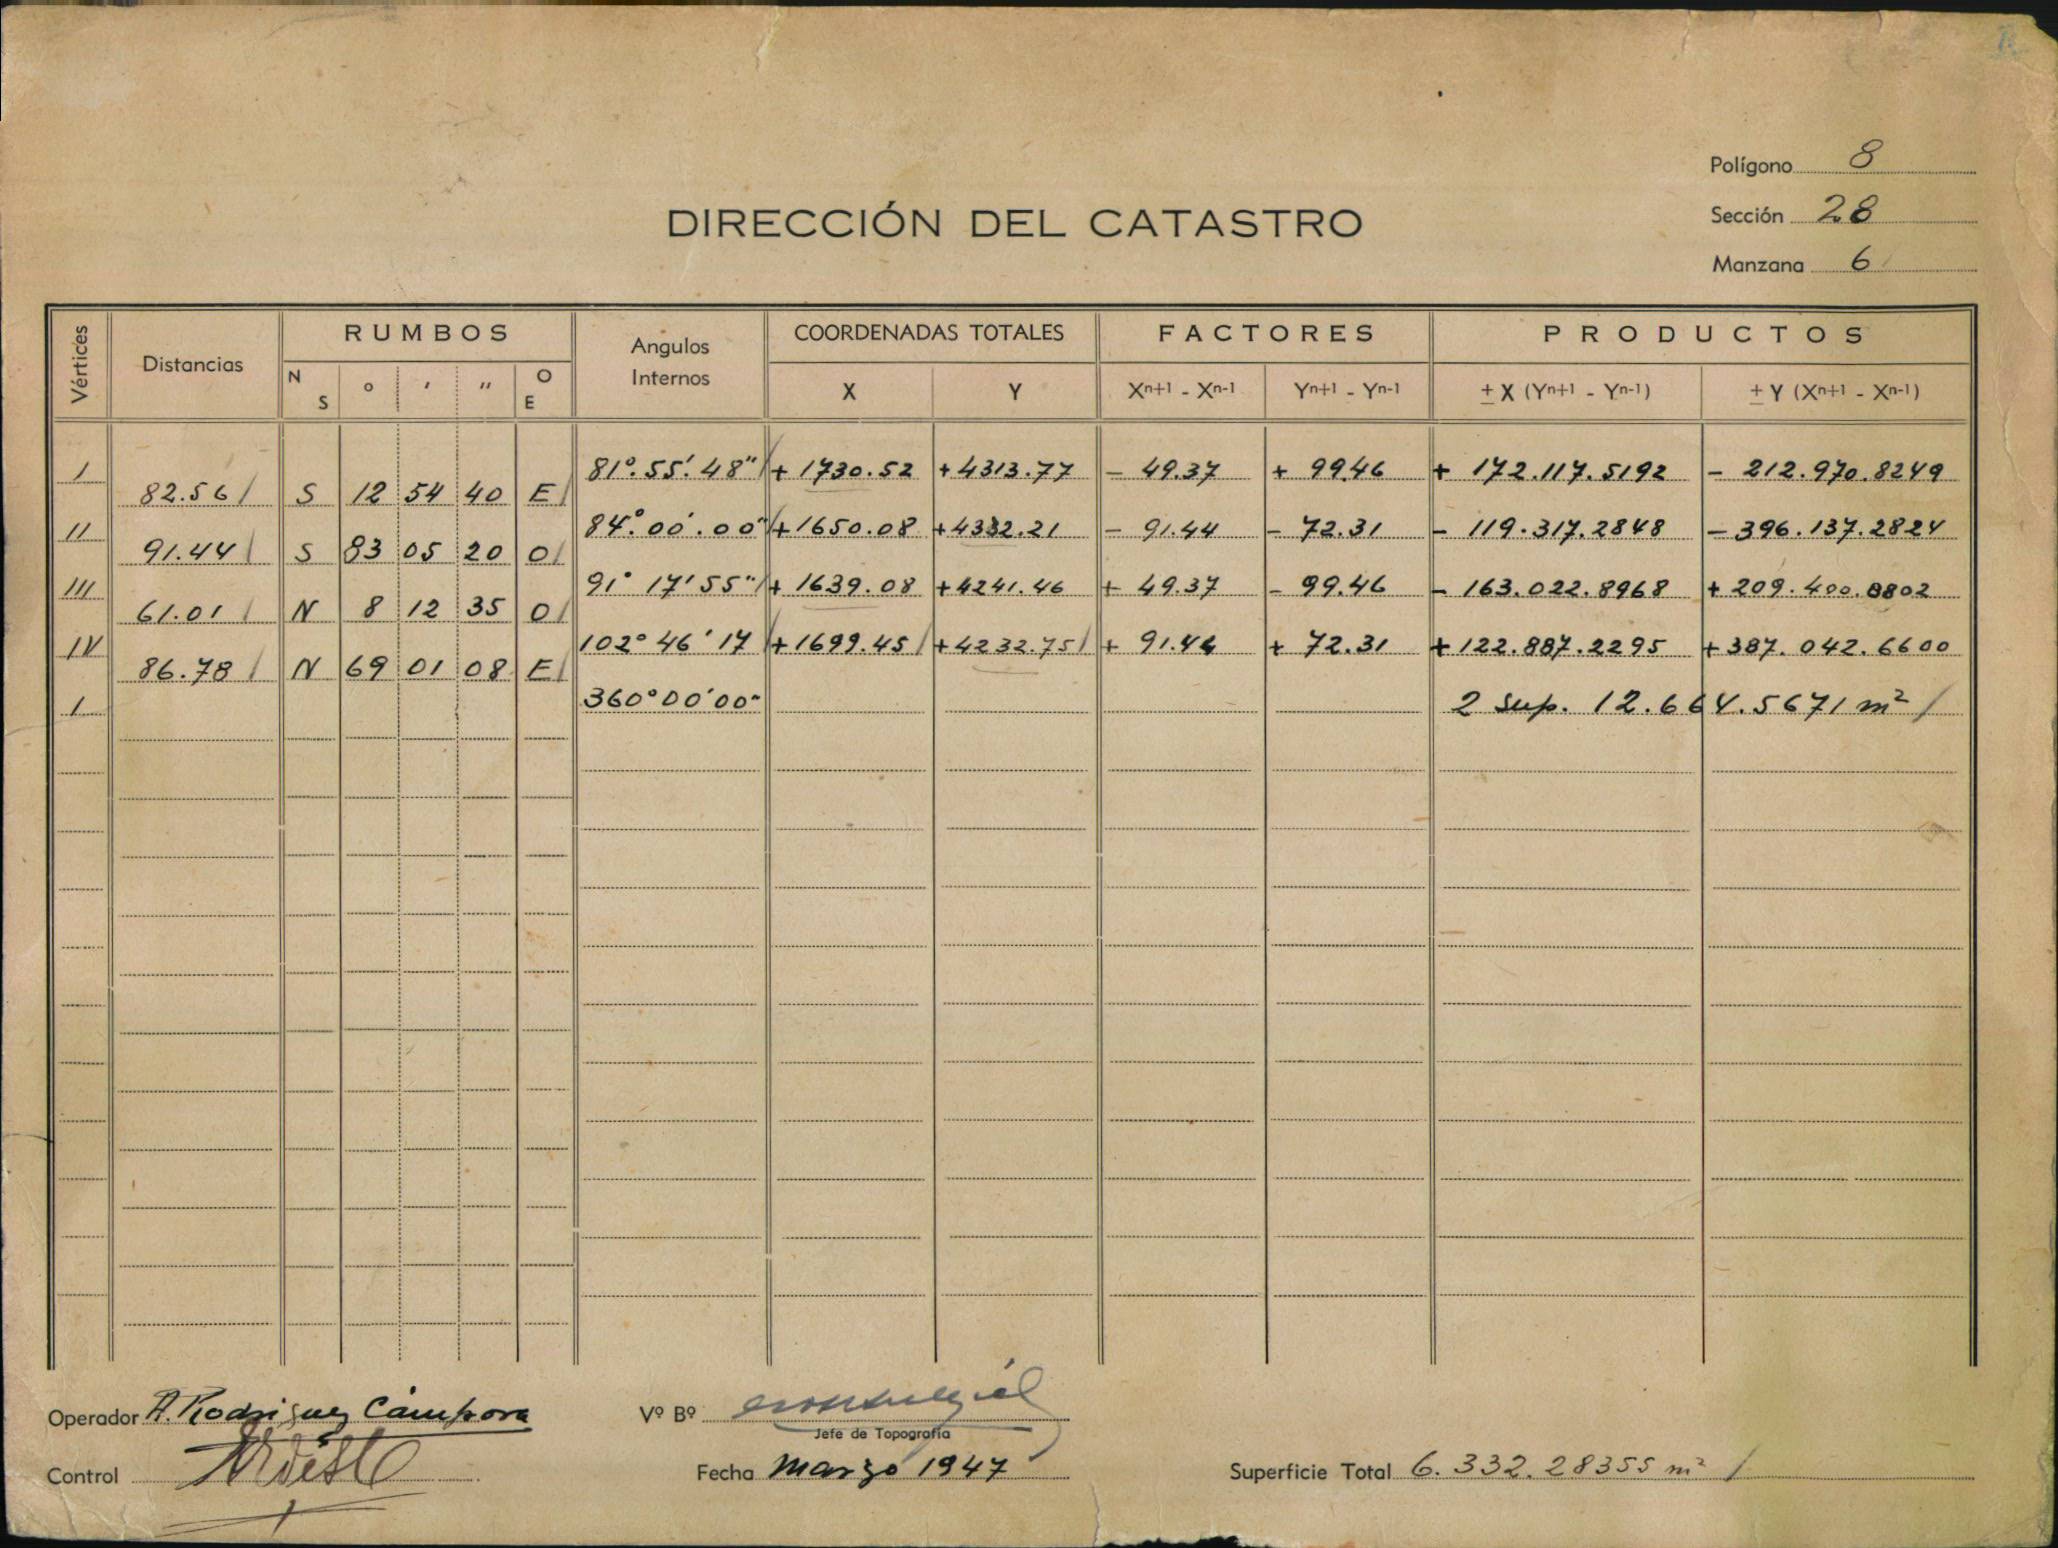 Polígono 8
Sección 28
Manzana 6
DIRECCIÓN DEL CATASTRO
Vértices Distancias RUMBOS Angulos Internos COORDENADAS TOTALES FACTORES PRODUCTOS
N S ° ' " O E X Y Xn+1 - Xn-1 Yn+1 - Yn-1 ± X (Yn+1 - Yn-1) ± Y (Xn+1 - Xn-1)
I 81°.55'.48" + 1730.52 + 4313.77 - 49.37 + 99.46 + 172.117.5192 - 212.970.8249
82.56 S 12 54 40 E
II 84°.00'.00" + 1650.08 + 4332.21 - 91.44 - 72.31 - 119.317.2848 - 396.137.2824
91.44 S 83 05 20 O
III 91° 17' 55" + 1639.08 + 4241.46 + 49.37 - 99.46 - 163.022.8968 + 209.400.8802
61.01 N 8 12 35 O
IV 102° 46' 17 + 1699.45 + 4232.75 + 91.44 + 72.31 + 122.887.2295 + 387.042.6600
86.78 N 69 01 08 E
I 360°00'00" 2 Sup. 12.664.5671 m²
Operador A. Rodriguez Cámpora
Vº Bº
Jefe de Topografía
Control
Fecha Marzo 1947
Superficie Total 6.332.28355 m²